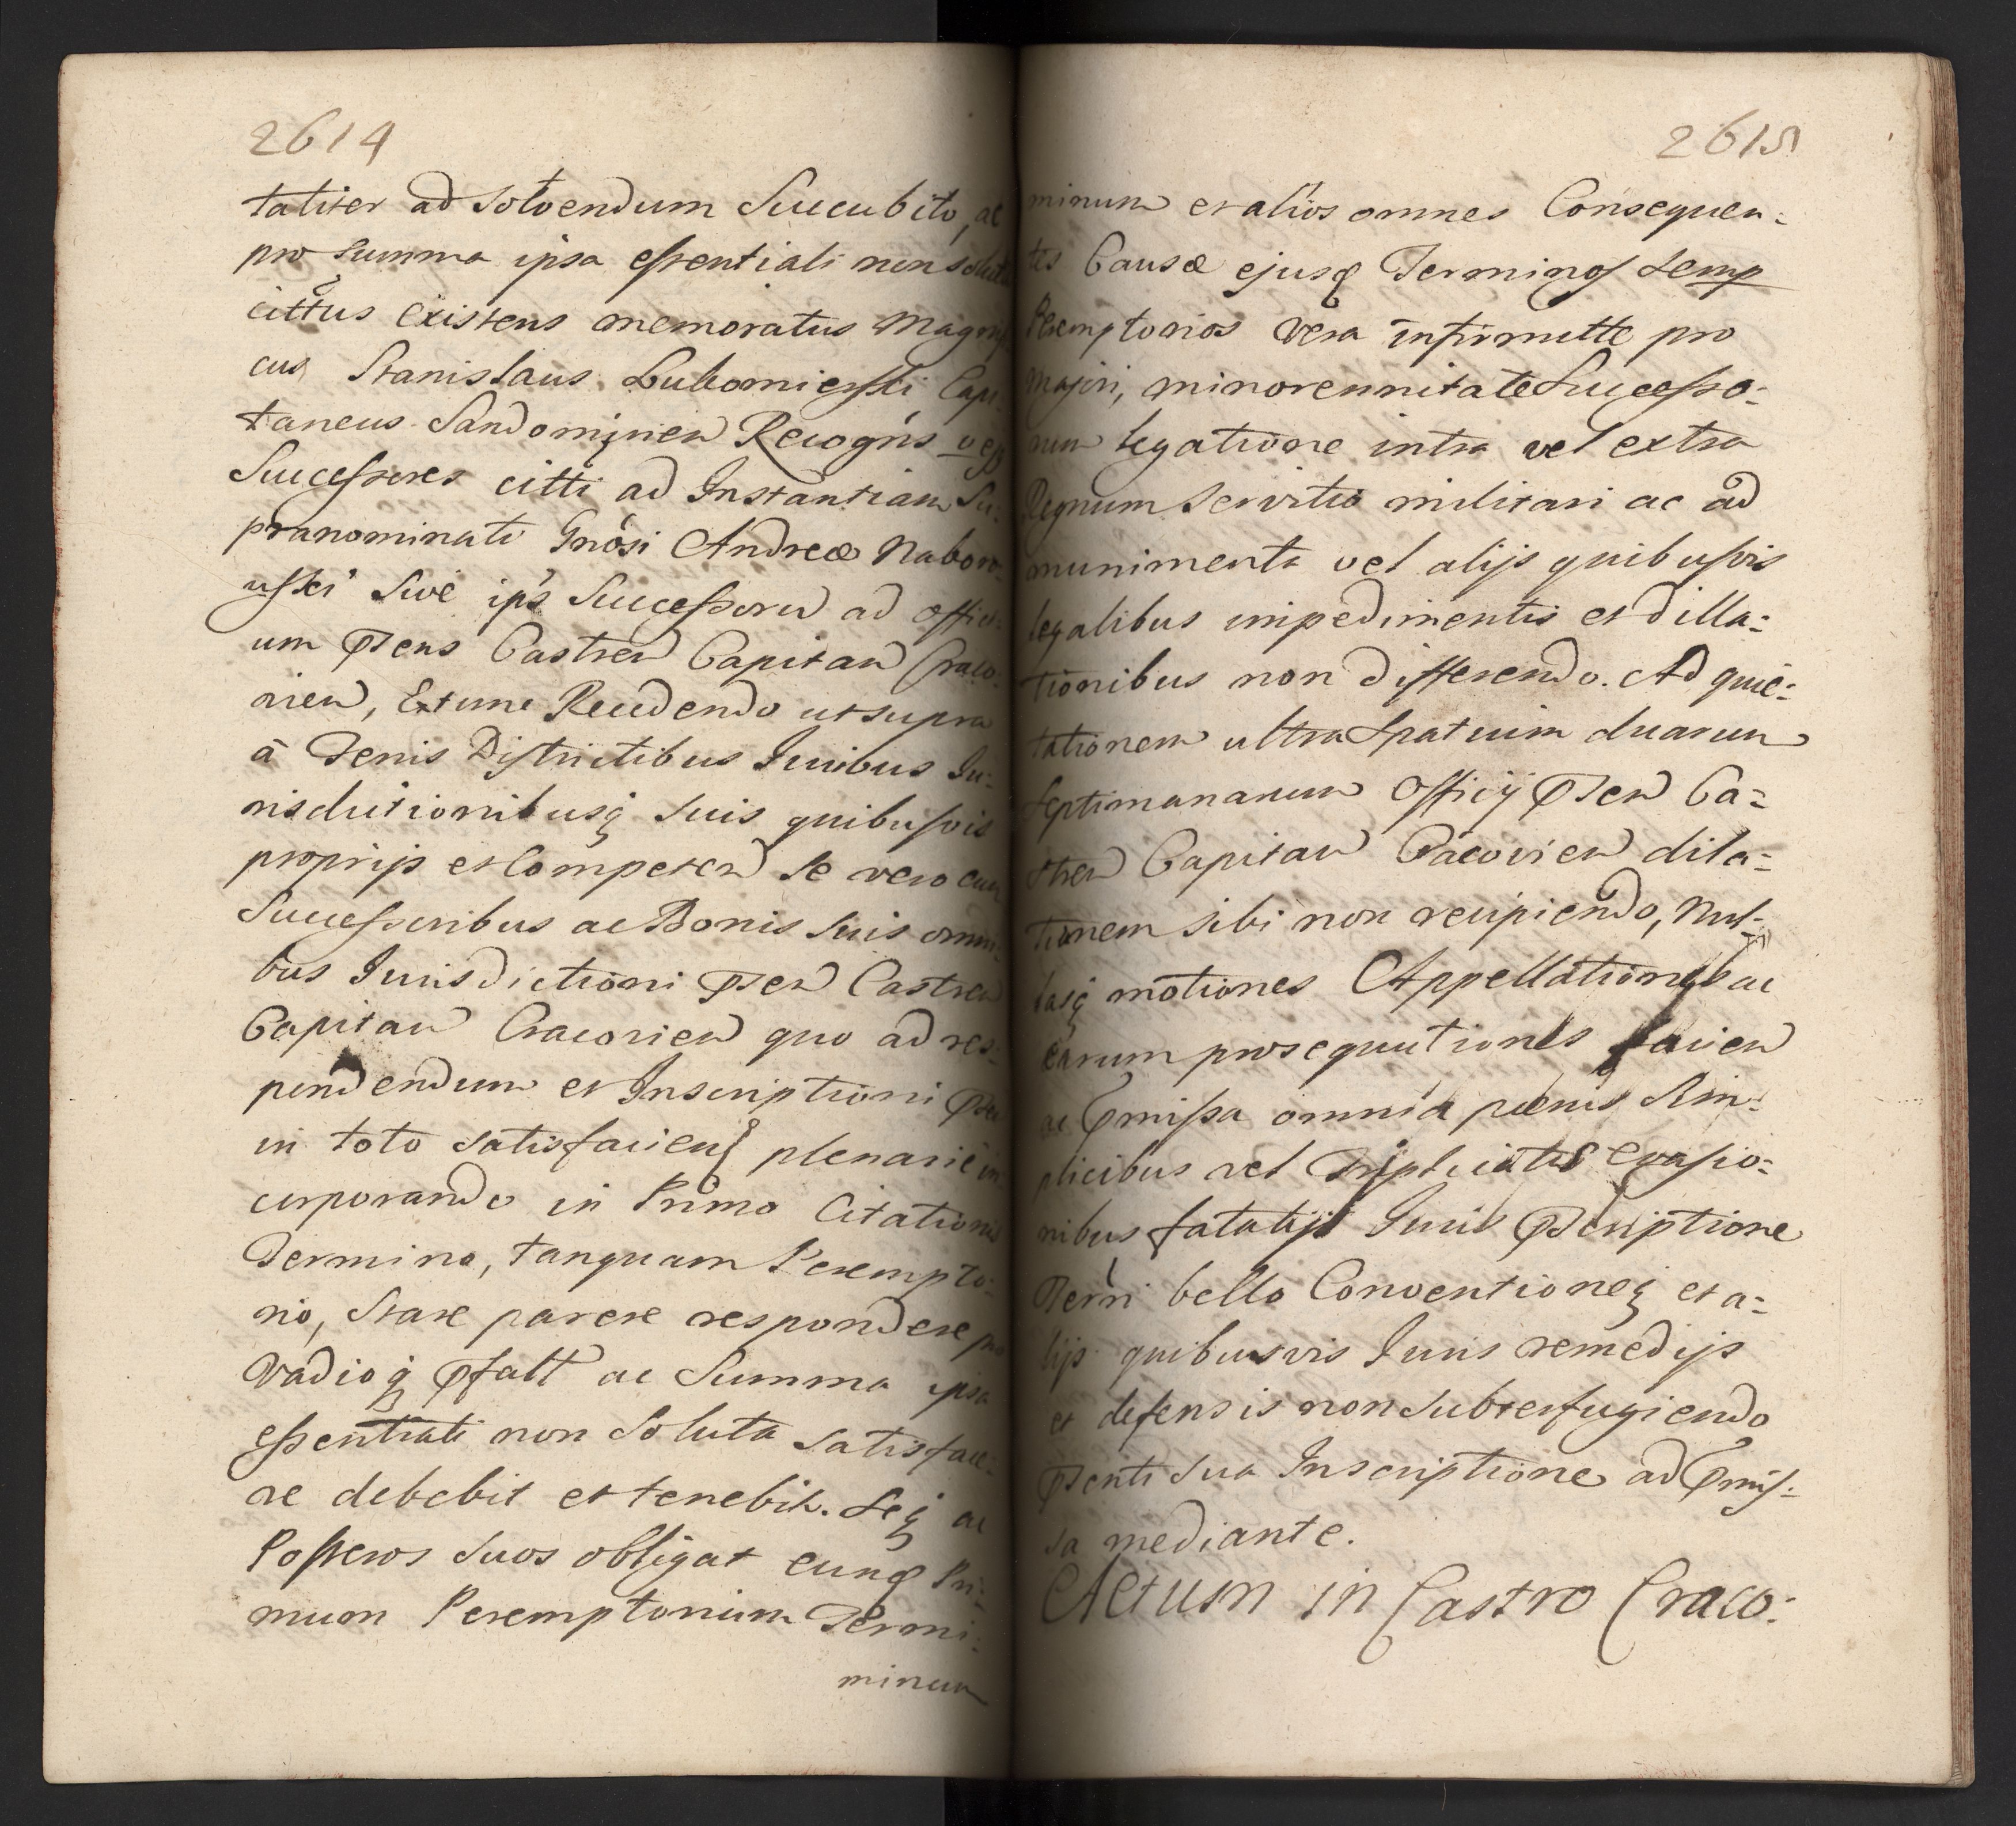 2614
taliter ad solvendum Succubito, ac
pro summa ipsa essentiali non soluta
cittus existens memoratus Magnifi
cus Stanislaus Lubomierski Capi:
taneus Sandomirien Recogns
Successores citti ad Instantiam Su:
pranominati Gnosi Andreæ Nabor
uski Sive ips Successoru ad offici:
um Psens Castren Capitan Craco:
vien, Extunc Recedendo ut supra
a Tenis Districtibus Iuribus Iu:
risdictionibusq suis quibusvis
proprijs et Competen se vero cum
Successoribus ac Bonis Suis omni:
bus Iurisdictioni Psen Castren
Capitan Cracovien quo ad res:
pondendum et Inscriptioni
in toto satisfacien plenarie in
corporando in Primo Citationis
Termino, tanquam Perempto:
rio, Stare parere respondere
Vadioq Pfatt ac Summa ipsa
essentiali non Soluta satisface:
re debebit et tenebit. Seq ac
Posteros Suos obligat eunq Pri:
mum Peremptorium Termi:
minum
2615
minum et alios omnes Consequen:
tes Causæ ejusq Terminos Semp
Peremptorios vera infirmitte pro
majori, minorennitate Successo:
rum legatione intra vel extra
Regnum Servitio militari ac ad
munimenta vel alijs quibusvis
legalibus impedimentis et dilla:
tionibus non differendo. Ad quie:
tationem ultra Spatium duarum
Septimanarum Officij Psen Ca:
stren Capitan Cracovien dila:
tionem sibi non recipiendo, Nul:
lasq motiones Appellationes ac
earum prosequutiones facien
ac Pmissa omnia pænis Sim:
plicibus vel triplicatis evasio:
nibus fatalijs Iuris Pscriptione
Terri bello Conventioneq et a:
lijs quibusvis Iuris remedijs
et defensis non subterfugiendo
Psenti Sua Inscriptione ad Pmis:
sa mediante.
Actum in Castro Craco: